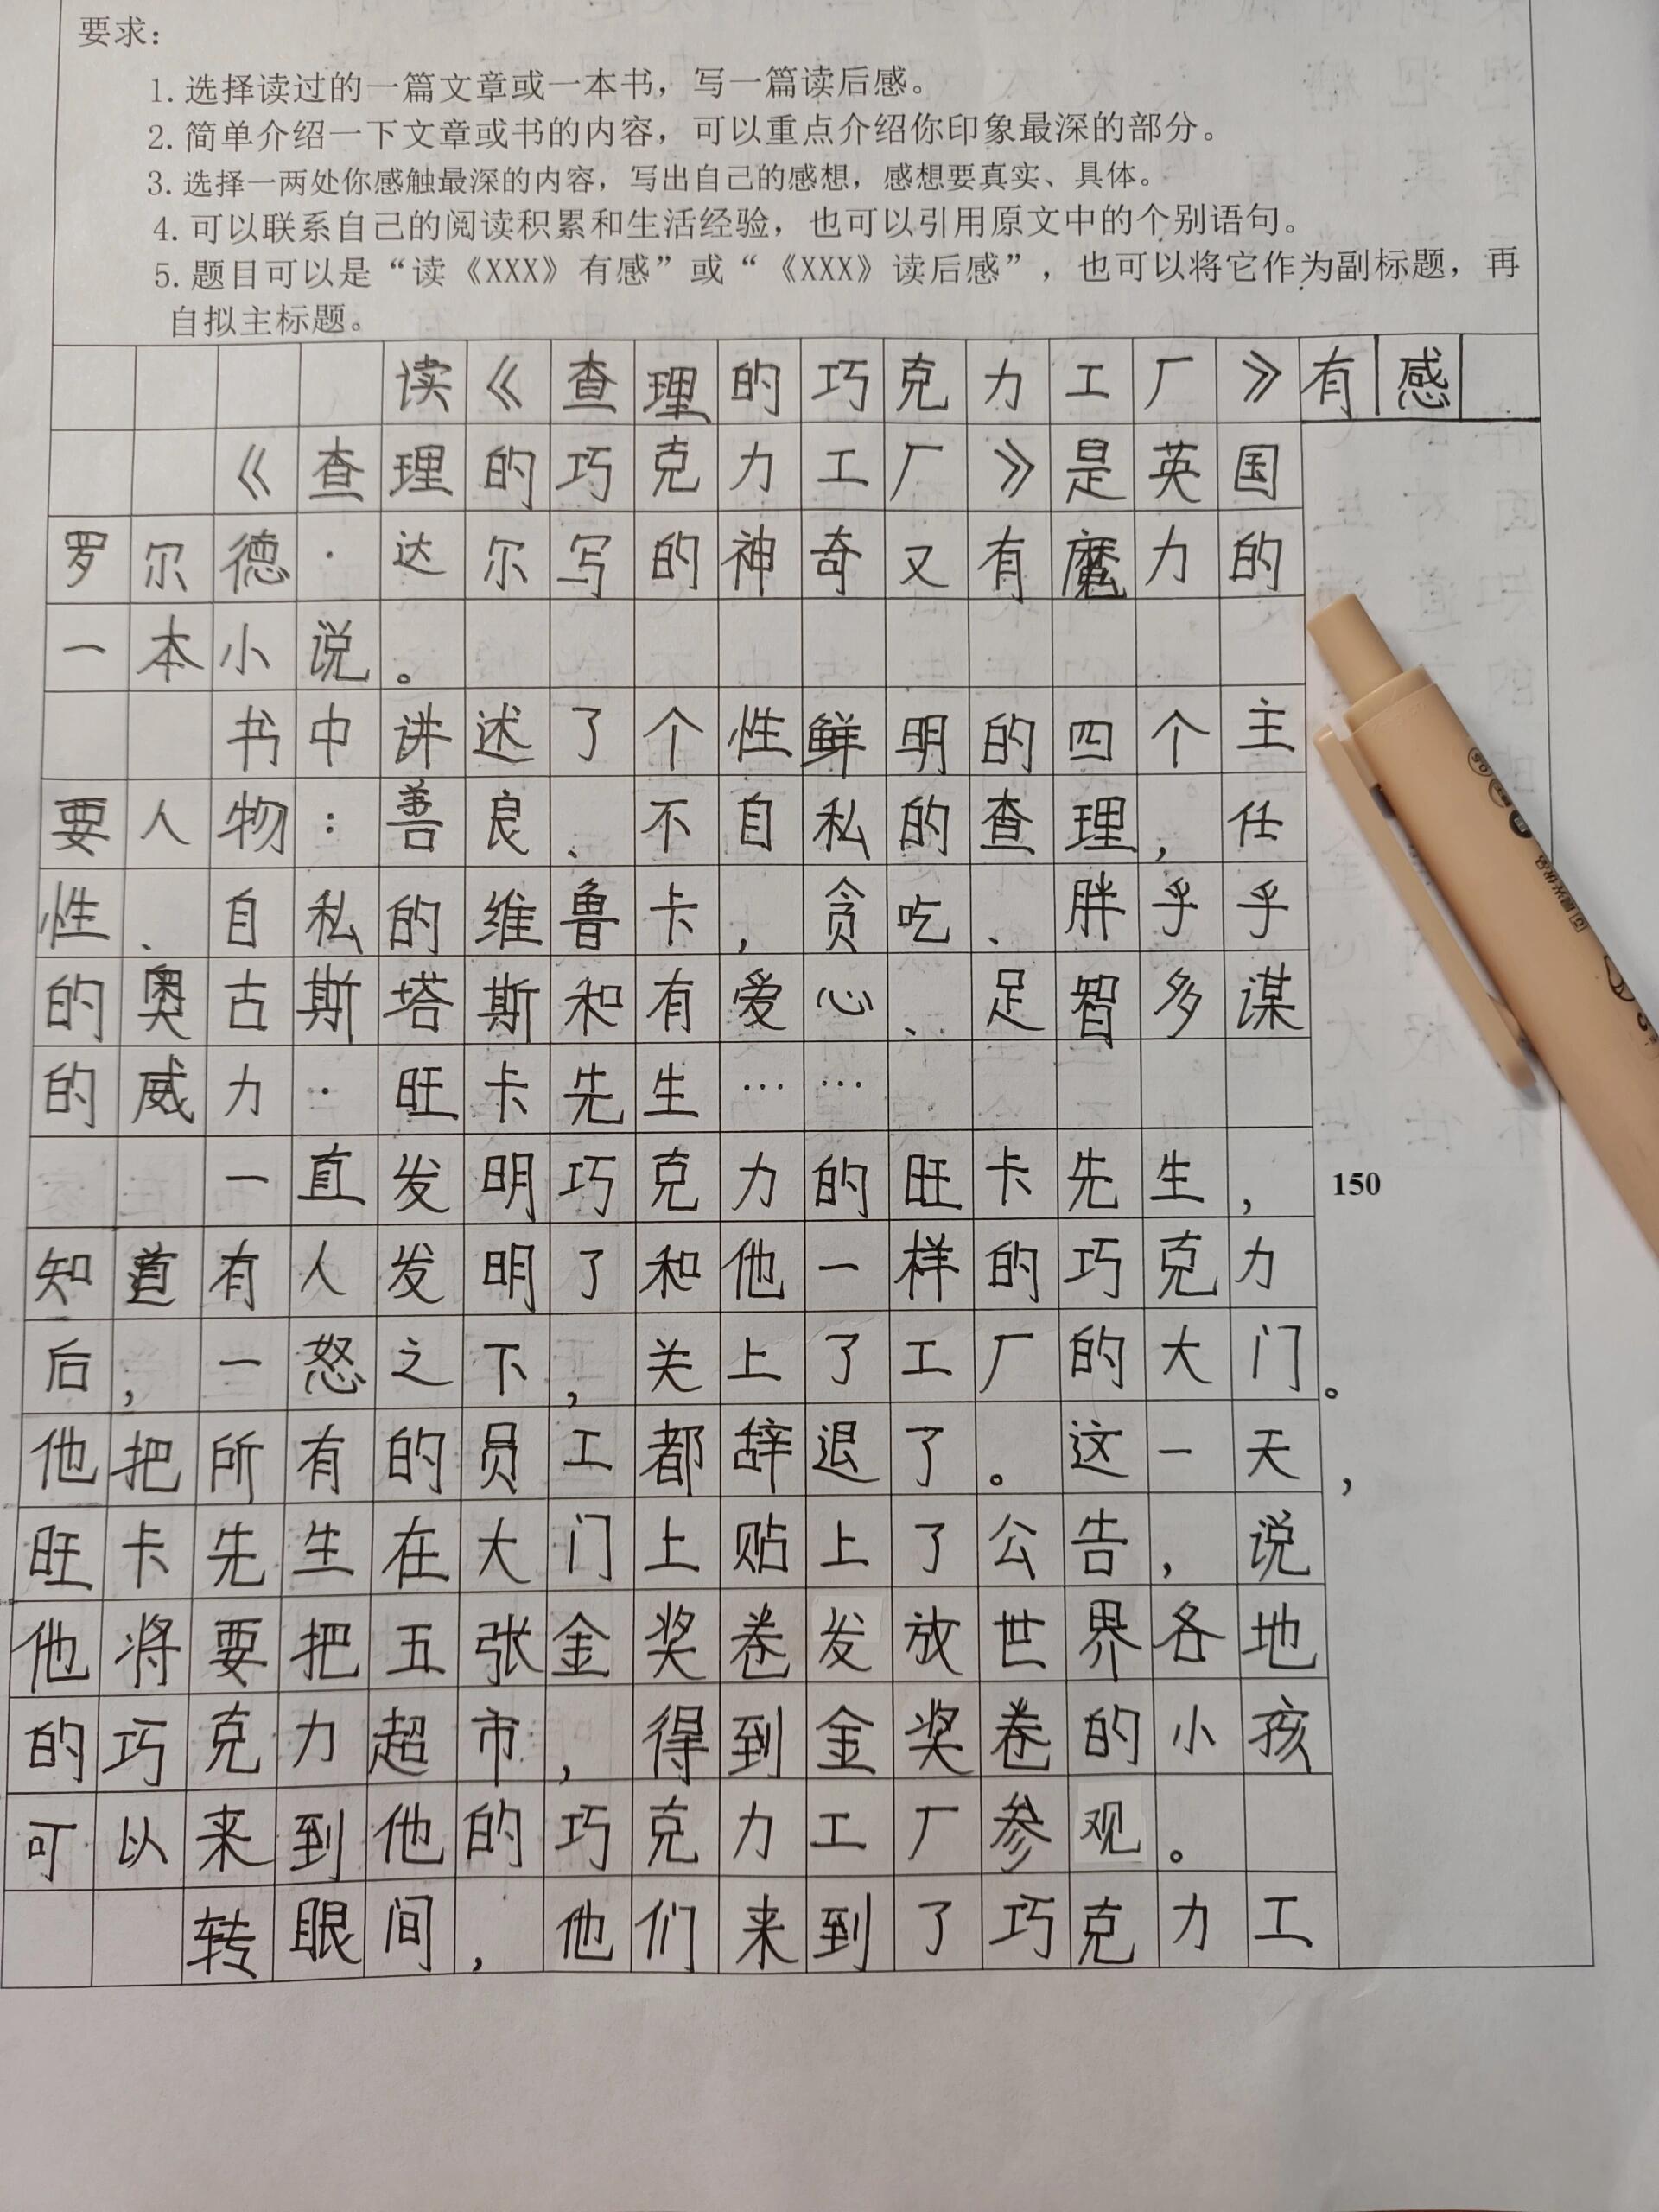 要求：
1. 选择读过的一篇文章或一本书，写一篇读后感。
2. 简单介绍一下文章或书的内容，可以重点介绍你印象最深的部分。
3. 选择一两处你感触最深的内容，写出自己的感想，感想要真实、具体。
4. 可以联系自己的阅读积累和生活经验，也可以引用原文中的个别语句。
5. 题目可以是“读《XXX》有感”或“《XXX》读后感”，也可以将它作为副标题，再
自拟主标题。
读《查理的巧克力工厂》有感
《查理的巧克力工厂》是英国
罗尔德·达尔写的神奇又有魔力的
一本小说。
书中讲述了个性鲜明的四个主
要人物：善良、不自私的查理，任
性、自私的维鲁卡，贪吃、胖乎乎
的奥古斯塔斯和有爱心、足智多谋
的威力·旺卡先生……
一直发明巧克力的旺卡先生，
150
知道有人发明了和他一样的巧克力
后，一怒之下，关上了工厂的大门。
他把所有的员工都辞退了。这一天，
旺卡先生在大门上贴上了公告，说
他将要把五张金奖卷发放世界各地
的巧克力超市，得到金奖卷的小孩
可以来到他的巧克力工厂参观。
转眼间，他们来到了巧克力工